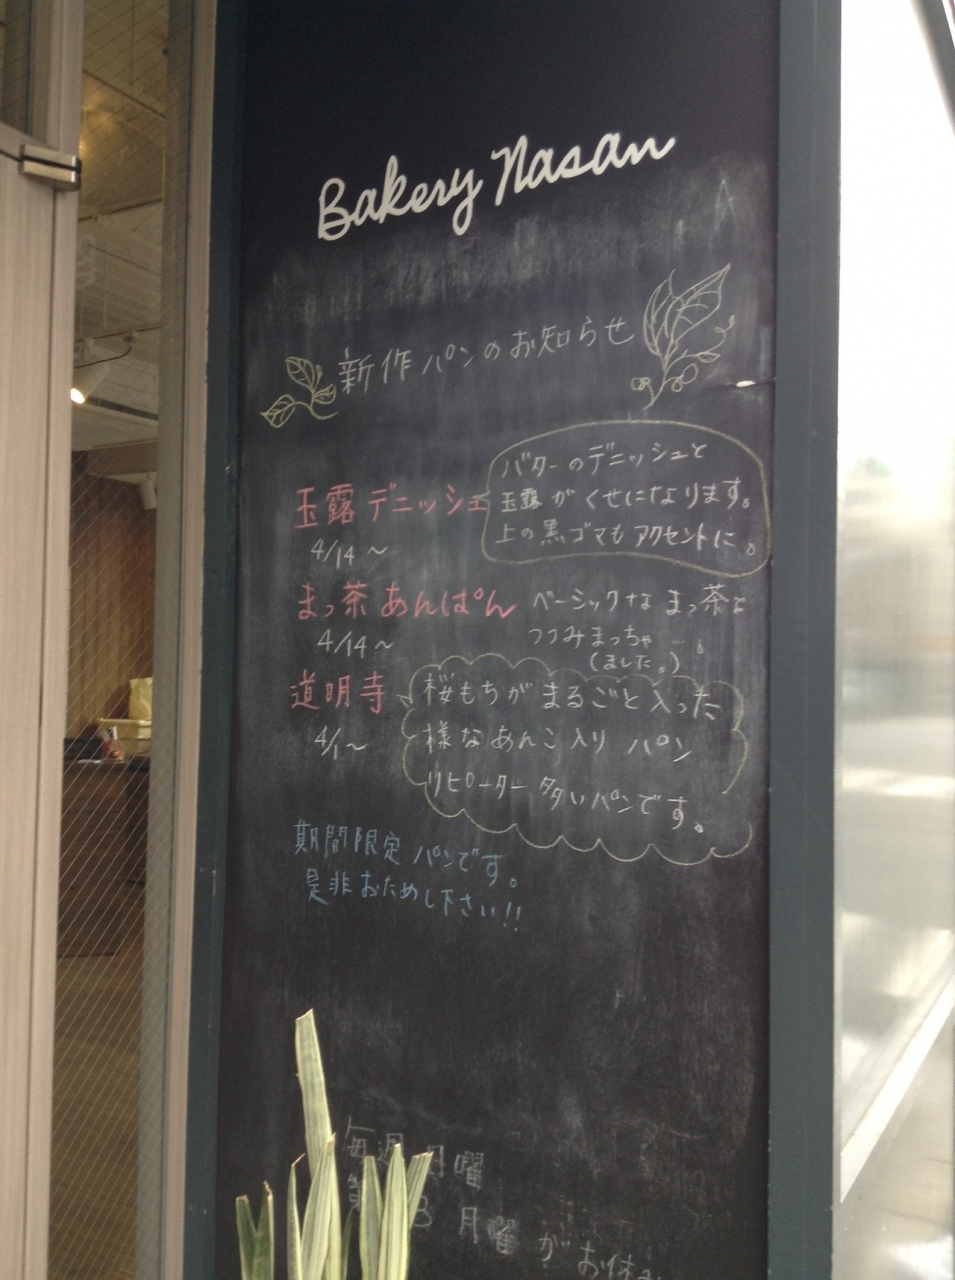 Bakery Nasan
新作パンのお知らせ
玉露デニッシュ
4/14〜
バターのデニッシュと
玉露がくせになります。
上の黒ゴマもアクセントに。
まっ茶あんぱん
4/14〜
ベーシックなまっ茶を
つつみまっちゃ…。
(ました。)
道明寺
4/1〜
桜もちがまるごと入った
様なあんこ入りパン
リピーター多いパンです。
期間限定パンです。
是非おためし下さい!!
毎週 月曜
第 3 月曜がお休み